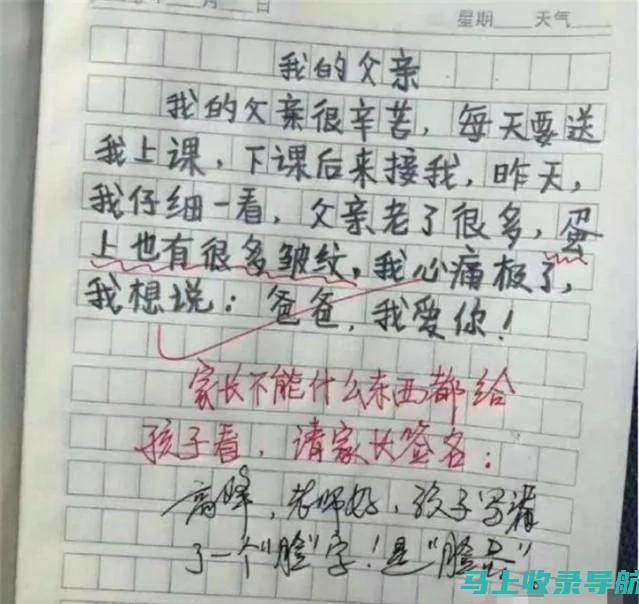 月 日
星期 天气
我的父亲
我的父亲很辛苦，每天要送
我上课，下课后来接我，昨天，
我仔细一看，父亲老了很多，蛋
上也有很多皱纹，我心痛极了，
我想说：爸爸，我爱你！
家长不能什么东西都给
孩子看，请家长签名：
高峰，老师好，孩子写漏
了一个"脸"字！是"脸蛋"
马上收录导航